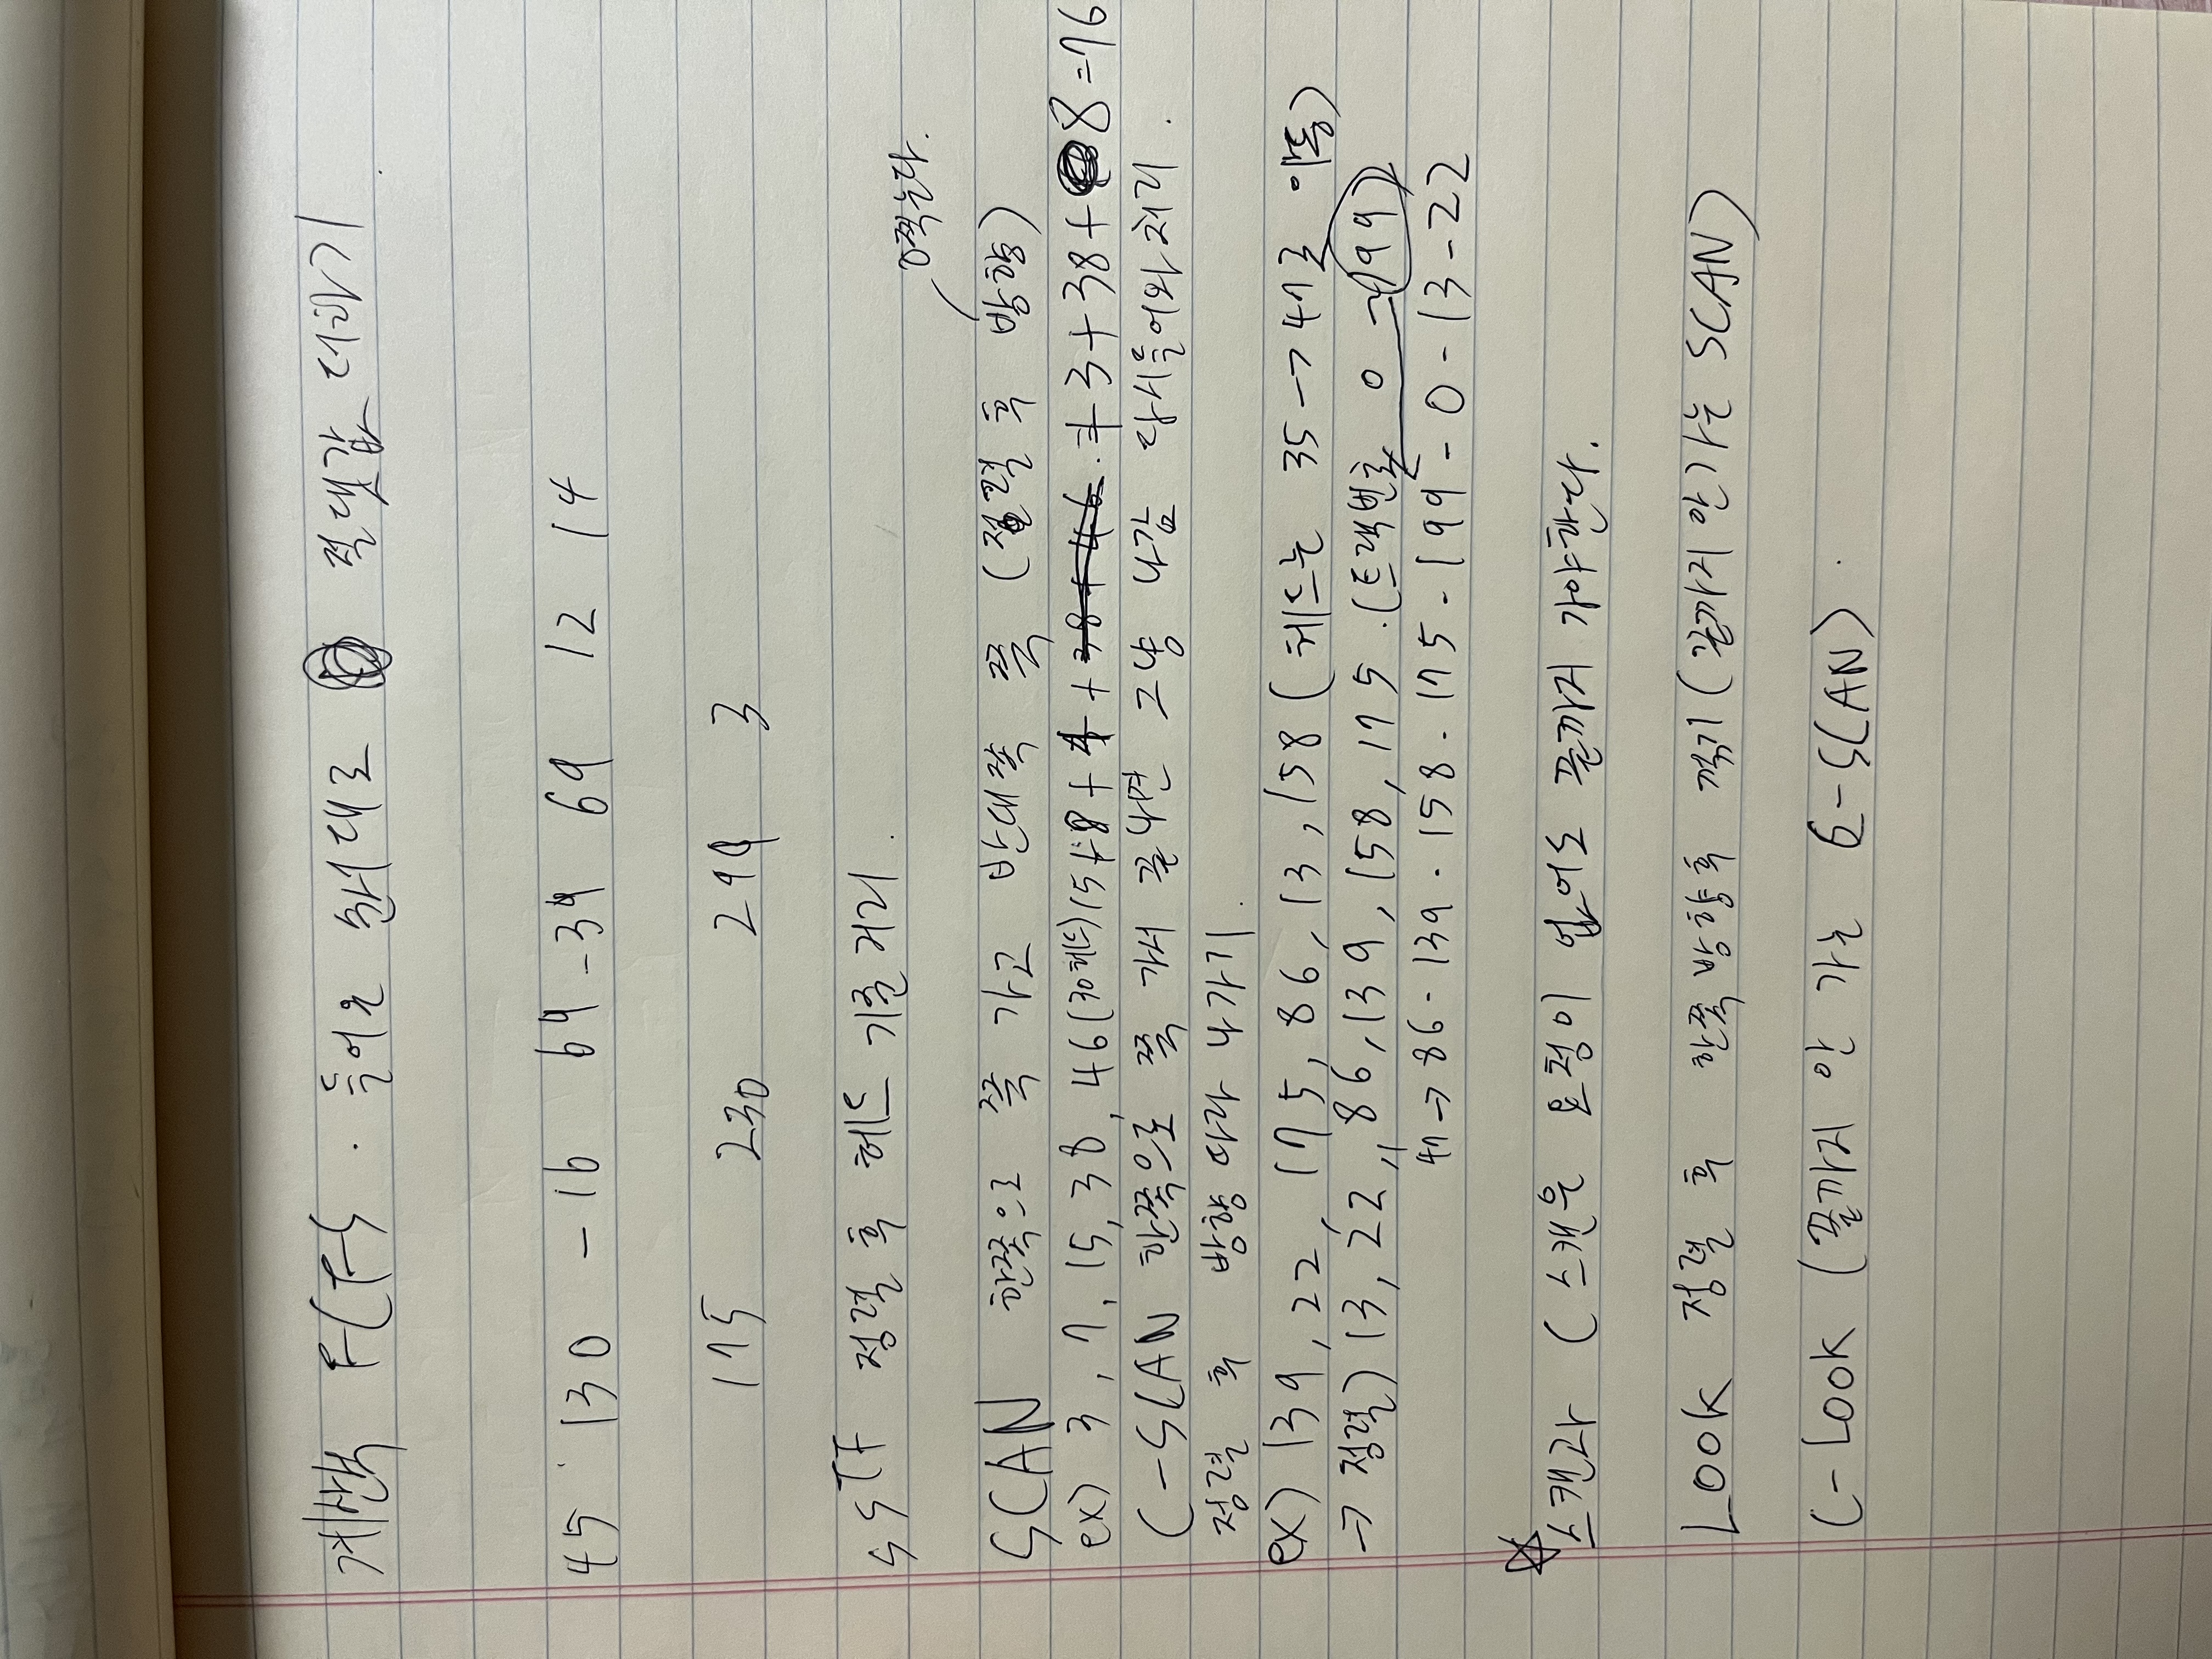 계산법 FCFS. 들어온 순서대로 절댓값 더하기.
45 130 -16 69 -39 69 12 14
175 230 299 3
SSTF 정렬 후 헤드 기준 거리.
0찍는다.
SCAN 한쪽으로 쭉 가고 반대쪽 쭉 (정렬 후 방향)
ex) 3, 7, 15, 38, 46 (30헤드) 15+8+4+3+38+8=76
C-SCAN 한쪽으로 쭉 가서 끝나면 그냥 나감 다시 들어와 처리.
정렬 후 방향따라 나가기.
ex) 139, 22, 175, 86, 13, 158 (헤드는 35→47로 이동)
→ 정렬) 13, 22,, 86, 139, 158, 175. (트랙번호 0~199)
47→86-139-158-175-199-0-13-22
☆스캔과 C스캔은 요청이 없어도 끝까지 가야한다.
LOOK 정렬 후 한쪽방향후 꺾기 (끝까지 안가는 SCAN)
C-LOOK (끝까지 안 가는 C-SCAN).